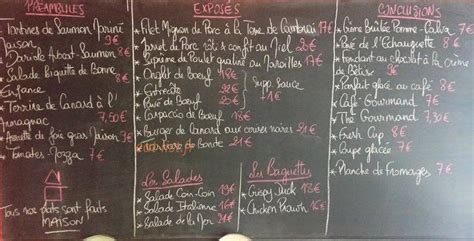 PRÉAMBULES
* Tartines de Saumon Mariné
Maison 9€
* Dariole Avocat-Saumon 8€
* Salade Biquette de Bonne
Enfance 8€
* Terrine de Canard à l'
Armagnac 7,50€
* Assiette de foie gras Maison 9€
* Tomates-Mozza 7€
Tous nos plats sont faits
MAISON!
EXPOSÉS
* Filet Mignon de Porc à la Tome de Cambrai 17€
* Jarret de Porc rôti & confit au Miel 20€
* Suprême de Poulet au Maroilles 17€
* Onglet de Boeuf
* Entrecôte
* Pavé de Boeuf
* Carpaccio de Boeuf
Supp. sauce
1€
* Burger de Canard aux courses rares 21€
Les Salades
* Salade Coin-Coin
* Salade Italienne 16€
* Salade de la Mer
Les Baguettes
* Crispy Duck 13€
* Chicken Prawn 16€
CONCLUSIONS
* Crème Brûlée Pomme-Calva 7€
* Pavé de l'Echauguette 8€
* Fondant au Chocolat à la Crème
de Bêtise 9€
* Parfait glacé au café 8€
* Café Gourmand 7€
* Thé Gourmand 7,50€
* Fresh Cup 8€
* Coupe glacée 7€
* Planche de Fromages 7€